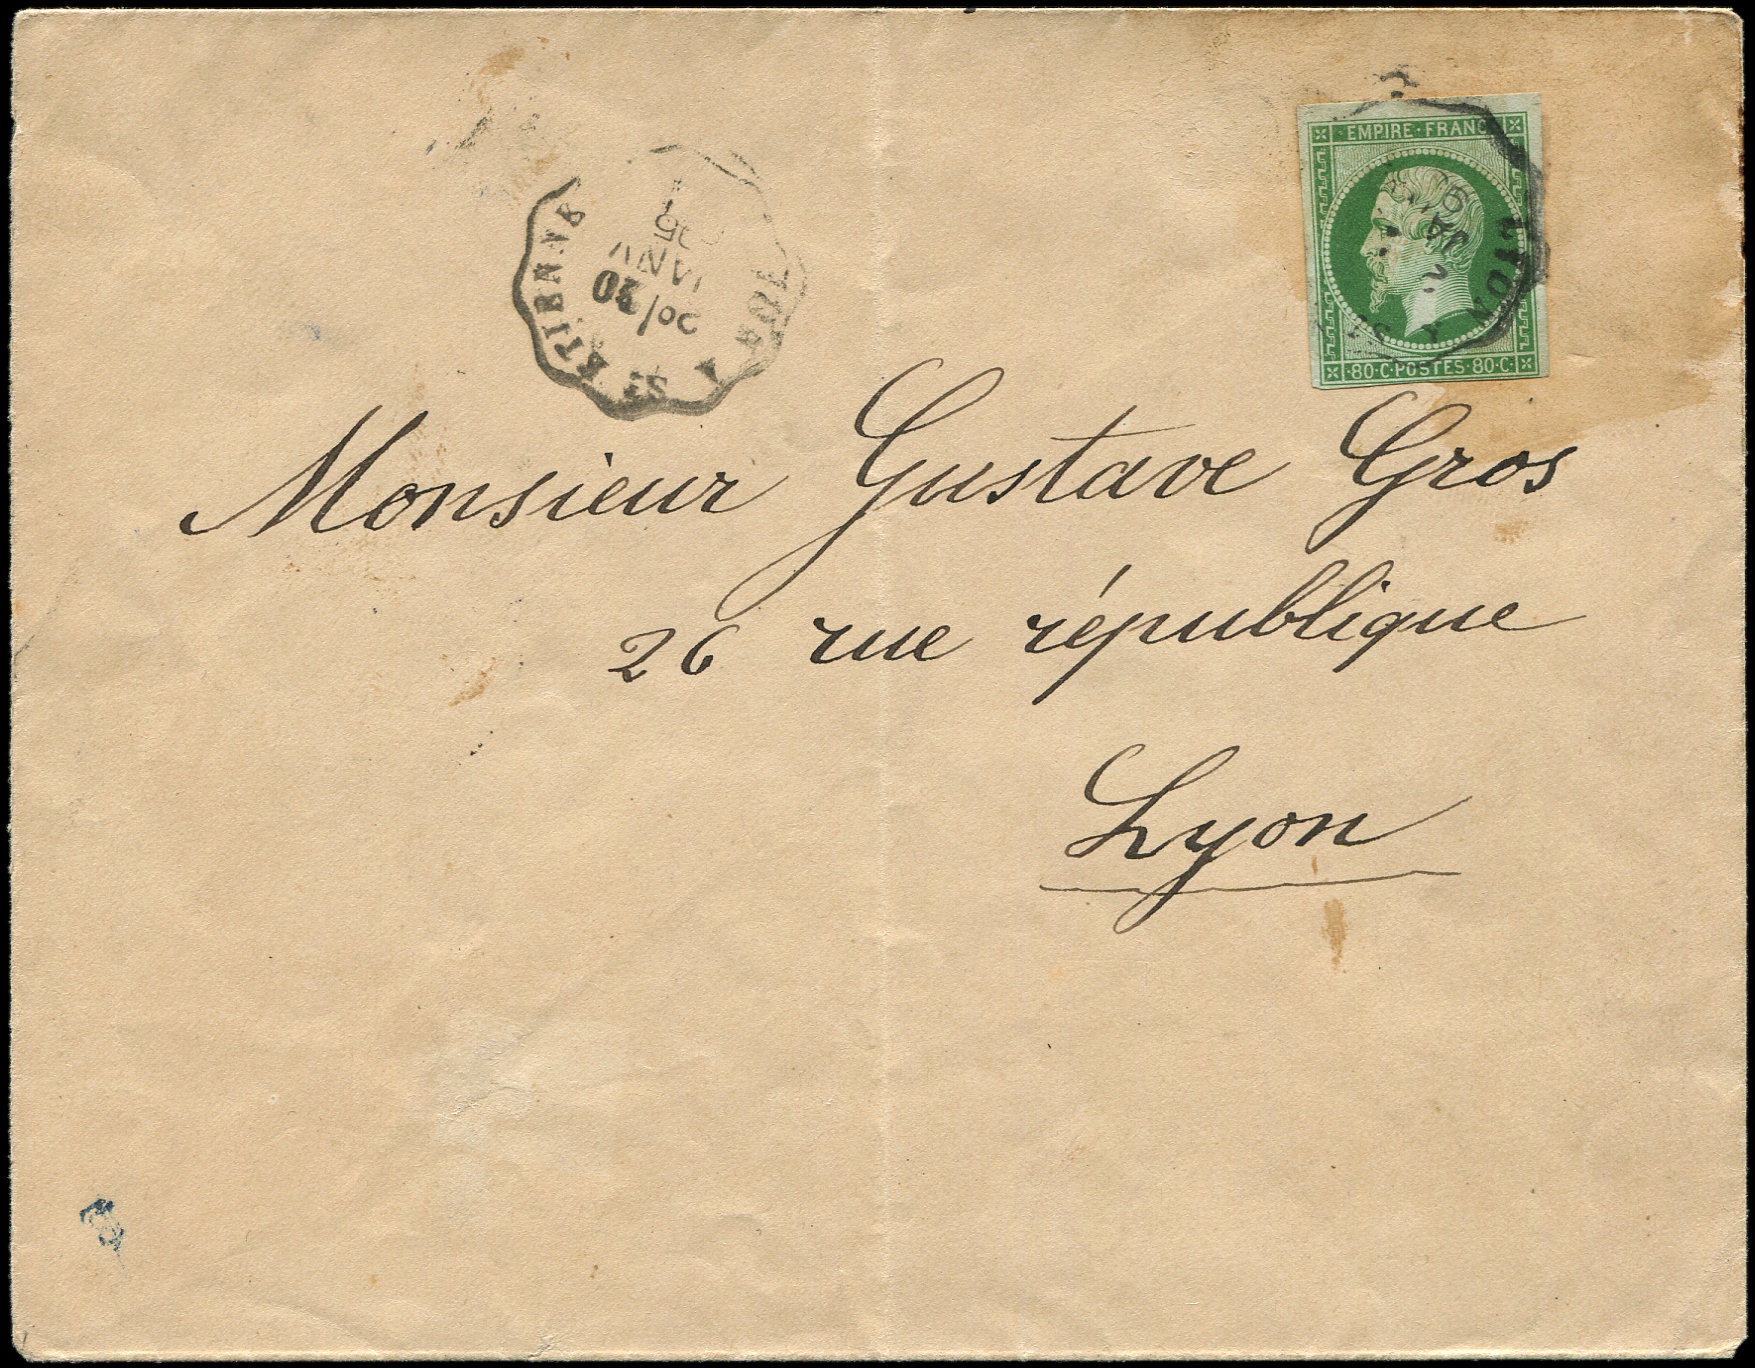 EMPIRE · FRANC
LYON A ST
· 80 · C · POSTES · 80 · C ·
ST ETIENNE A
20/20
JANV
95
Monsieur Gustave Gros
26 rue république
Lyon